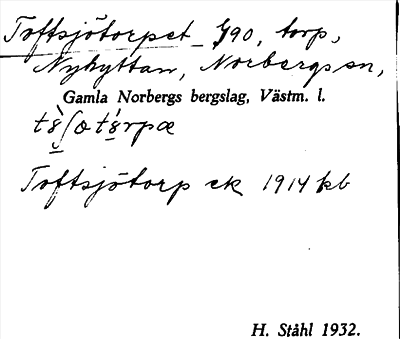 Toftsjötorpet G90, torp,
Nyhyttan, Norbergs sn,
Gamla Norbergs bergslag, Västm. l.
Toftsjötorp ek 1914 kb
H. Ståhl 1932.